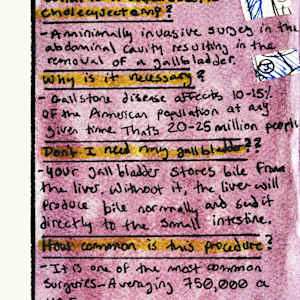 cholecystectomy?
- A minimally invasive surgey in the
abdominal cavity resulting in the
removal of a gallbladder.
Why is it necessary?
- Gallstone disease affects 10-15%
of the American population at any
given time. Thats 20-25 million people
Don't I need my gallbladder??
- Your gallbladder stores bile from
the liver. Without it, the liver will
produce bile normally and send it
directly to the small intestine.
How common is this procedure?
- It is one of the most common
surgeries - Averaging 750,000 a